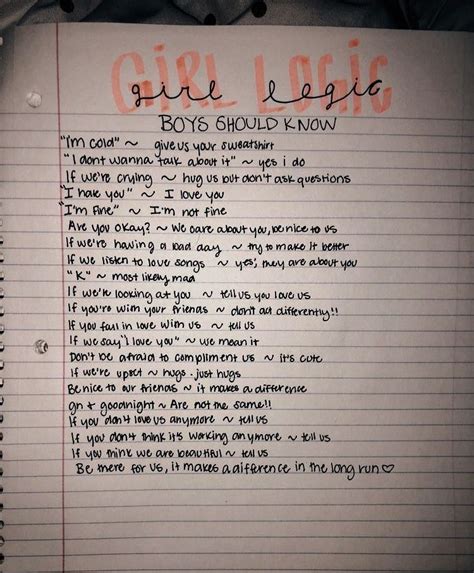 GIRL LOGIC
girl logic
BOYS SHOULD KNOW
"I'm cold" ~ give us your sweatshirt
"I dont wanna talk about it" ~ yes i do
If we're crying ~ hug us but don't ask questions
"I hate you" ~ I love you
"I'm fine" ~ I'm not fine
Are you okay? ~ We care about you, be nice to us
If we're having a bad day ~ try to make it better
If we listen to love songs ~ yes, they are about you
"K" ~ most likely mad
If we're looking at you ~ tell us you love us
If you're with your friends ~ don't act differently!!
If you fall in love with us ~ tell us
If we say "I love you" ~ we mean it
Don't be afraid to compliment us ~ it's cute
If we're upset ~ hugs. just hugs
Be nice to our friends ~ it makes a difference
gn + goodnight ~ Are not the same!!
If you don't love us anymore ~ tell us
If you don't think it's working anymore ~ tell us
If you think we are beautiful ~ tell us
Be there for us, it makes a difference in the long run ♡